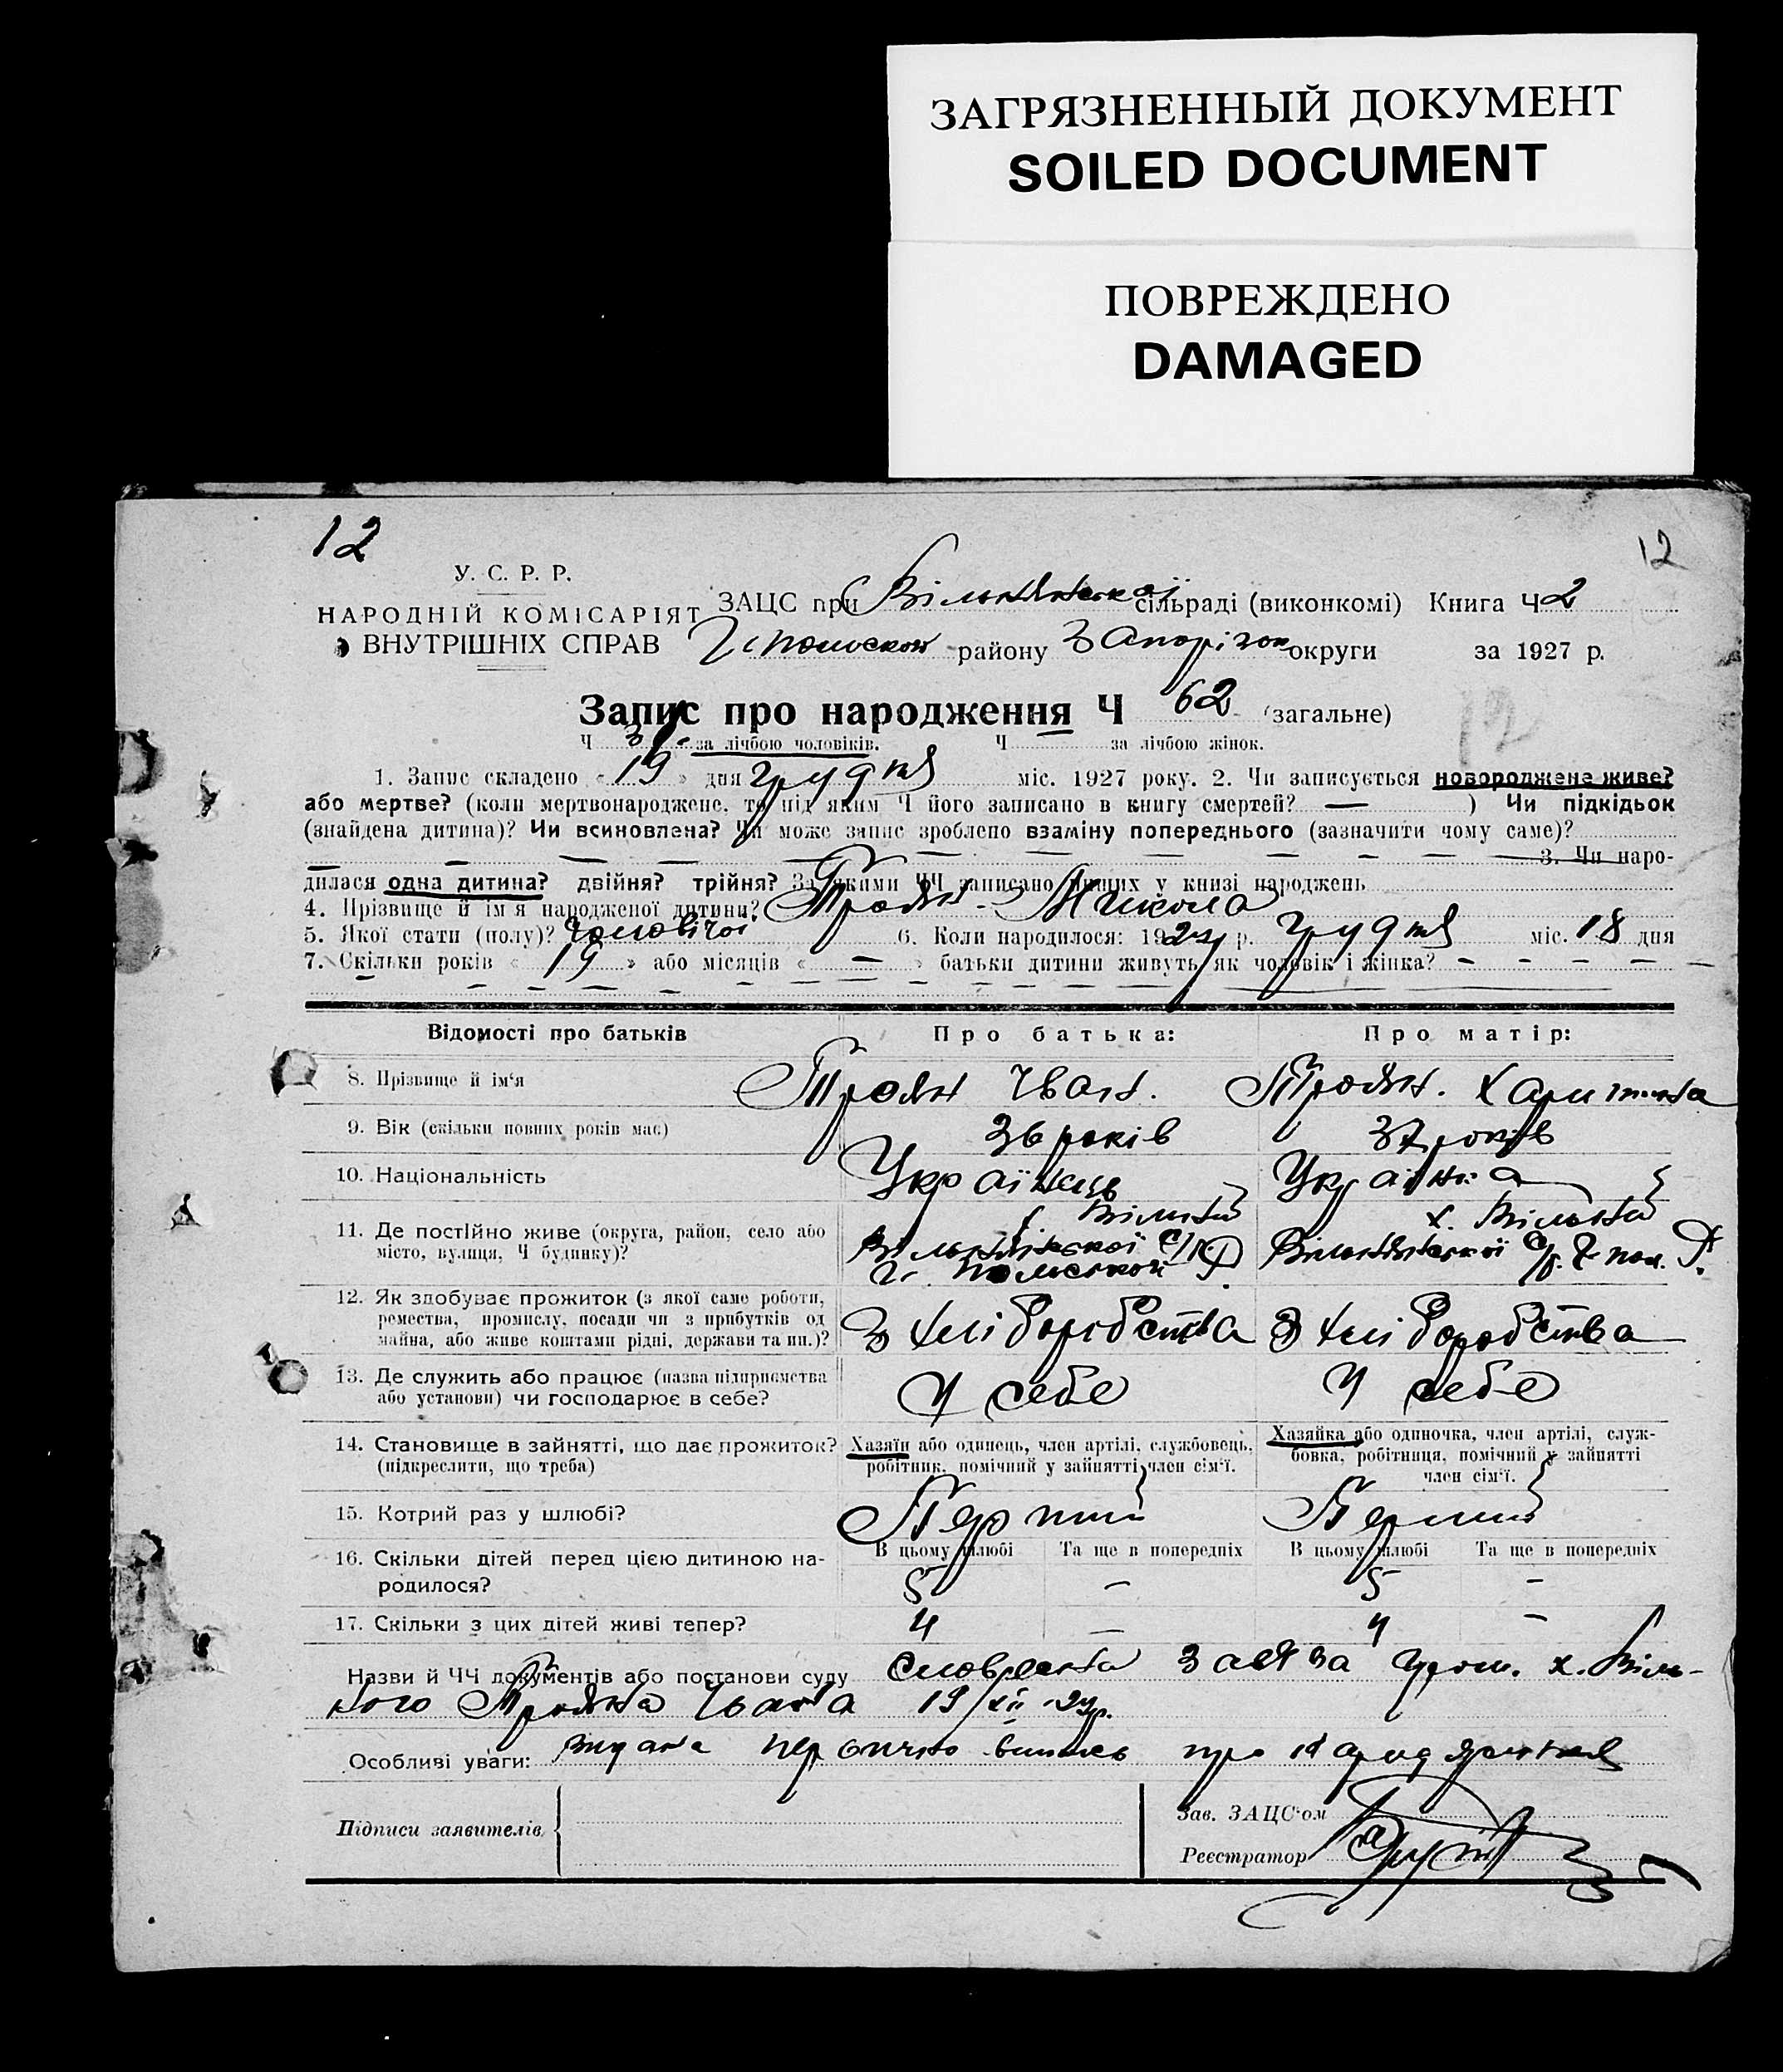 ЗАГРЯЗНЕННЫЙ ДОКУМЕНТ
SOILED DOCUMENT
ПОВРЕЖДЕНО
DAMAGED
12
12
У. С. Р. Р.
НАРОДНІЙ КОМІСАРІЯТ
ВНУТРІШНІХ СПРАВ
ЗАЦС при Вільнянської сільраді (виконкомі) Книга Ч 2
району Запорізок округи за 1927 р.
12
Запис про народження Ч 62 (загальне)
Ч за лічбою чоловіків. Ч за лічбою жінок.
1. Запис складено « 19 » дня грудня міс. 1927 року. 2. Чи записується новороджене живе?
або мертве? (коли мертвонароджене, то під яким Ч його записано в книгу смертей? — ) Чи підкідьок
(знайдена дитина)? Чи всиновлена? Чи може запис зроблено взаміну попереднього (зазначити чому саме)?
3. Чи наро-
дилася одна дитина? двійня? трійня? За якими ЧЧ записано инших у книзі народжень
4. Прізвище й ім'я народженої дитини? Троян Микола
5. Якої стати (полу)? Чоловічої 6. Коли народилося: 1927 р. грудня міс. 18 дня
7. Скільки років « 19 » або місяців « — » батьки дитини живуть як чоловік і жінка? - - - - -
Відомості про батьків Про батька: Про матір:
8. Прізвище й ім'я Троян Іван. Троян. Харитина
9. Вік (скільки повних років має) 36 років 37 років
10. Національність Українець Українка
11. Де постійно живе (округа, район, село або х. Вільний х. Вільний
місто, вулиця, Ч будинку)? Вільнянської с/р. Вільнянської с/р.
12. Як здобуває прожиток (з якої саме роботи,
ремества, промислу, посади чи з прибутків од
майна, або живе коштами рідні, держави та ин.)? З хліборобства З хліборобства
13. Де служить або працює (назва підприємства
або установи) чи господарює в себе? У себе У себе
14. Становище в зайнятті, що дає прожиток? Хазяїн або одинець, член артілі, службовець, Хазяйка або одиночка, член артілі, служ-
(підкреслити, що треба) робітник, помічний у зайнятті член сім'ї. бовка, робітниця, помічний у зайнятті
член сім'ї.
15. Котрий раз у шлюбі? Перший Перший
В цьому шлюбі Та ще в попередніх В цьому шлюбі Та ще в попередніх
16. Скільки дітей перед цією дитиною на-
родилося? 5 — 5 —
17. Скільки з цих дітей живі тепер? 4 — 4 —
Назви й ЧЧ документів або постанови суду Словесна заява гром. х. Віль-
ного Трояна Івана 19/XII-27р.
Особливі уваги: видана первично випись про народження
Підписи заявителів
Зав. ЗАЦС'ом
Реєстратор